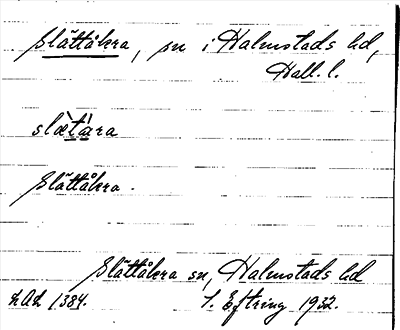 Slättåkra, sn i Halmstads hd,
Hall. l.
slætara
Slättåkra.
Slättåkra sn, Halmstads hd
LAL 1384. S. Eftring 1932.